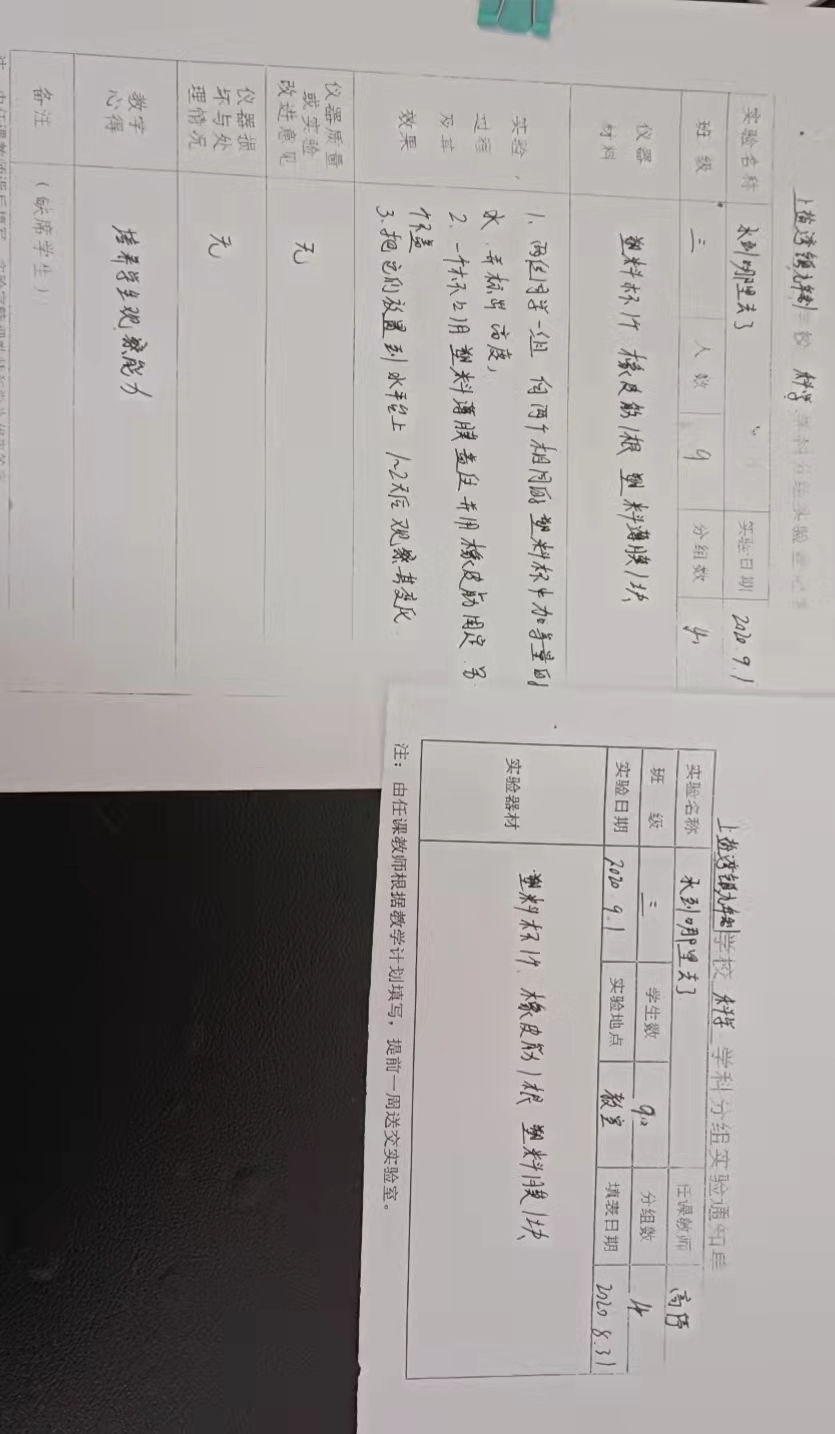 上盐湾镇九年制学校 科学 学科分组实验
实验名称 水到哪里去了 实验日期 2020.9.1
班级 三 人数 9 分组数 4
仪器材料 塑料杯1个 橡皮筋1根 塑料薄膜1块
实验过程及其效果
1、两位同学一组 向两个相同的塑料杯中加等量的
水,并标出高度,
2、一个杯口用塑料薄膜盖住并用橡皮筋固定 另
个不盖
3、把它们放置到水平台上 1~2天后观察其变化
仪器质量或实验改进意见 无
仪器损坏与处理情况 无
教学心得 培养学生观察能力
备注 (缺席学生)
上盐湾镇九年制学校 科学 学科分组实验通知单
实验名称 水到哪里去了 任课教师 高
班级 三 学生数 9 分组数 4
实验日期 2020.9.1 实验地点 教室 填表日期 2020.8.31
实验器材 塑料杯1个、橡皮筋1根 塑料膜1块
注:由任课教师根据教学计划填写,提前一周送交实验室。